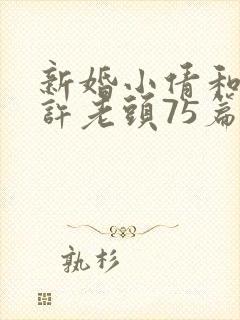 新婚小倩和
許老頭75篇
孰杉